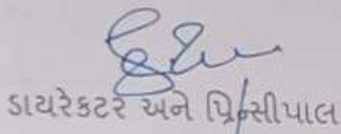 ડાયરેકટર અને પ્રિન્સીપાલ